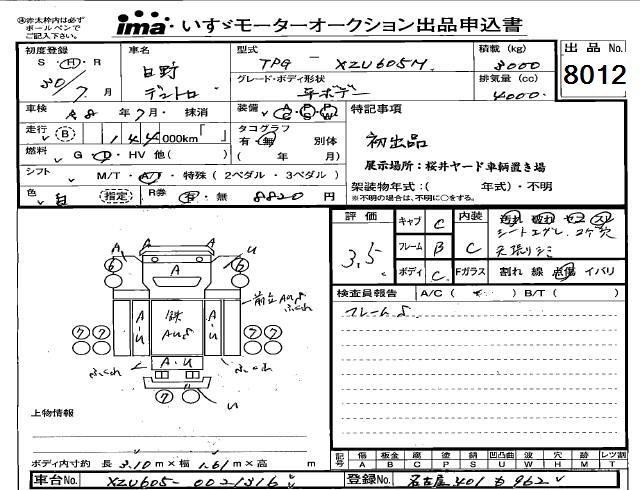 ※赤太枠内は必ず
ボールペンで
ご記入下さい。
ima いすゞモーターオークション出品申込書
出品 No.
8012
初度登録
S・H・R
30/7月
車名
日野
デュトロ
型式
TPG - XZU605M
グレード・ボディ形状
平ボデー
積載 (kg)
3000
排気量 (cc)
4000
車検 R8年7月・抹消
装備 AC PS PW
特記事項
初出品
展示場所：桜井ヤード車輌置き場
架装物年式：( 年式)・不明
※不明の場合は、不明に○をする。
走行 B 144 000km「 」
タコグラフ
有・無 別体
( 年 月)
燃料 G・D・HV 他( )
シフト M/T・A/T・特殊（2ペダル・3ペダル）
色 白 指定 R券 有・無 8820円
評価
3.5
キャブ C
フレーム B
ボディ C
内装 C
Fガラス 割れ 線 点傷 イバリ
シートエグレ、コゲ穴
天張りシミ
検査員報告 A/C ( ) B/T ( )
フレームS
A
U
6
6
A
前立AUS
ふくれ
A・U
鉄
AUS
A・U
7 7
7 7
A・U
ふくれ
ふくれ
7
U
上物情報
ボディ内寸約 長 3.10m×幅 1.61m×高 m
記号 傷 A 板金 B 腐 C 塗 P 錆 S 凹凸曲 U 波 W 穴 H 跡 M レツ割 T
車台No. XZU605-0021316
登録No. 名古屋 401 も 962